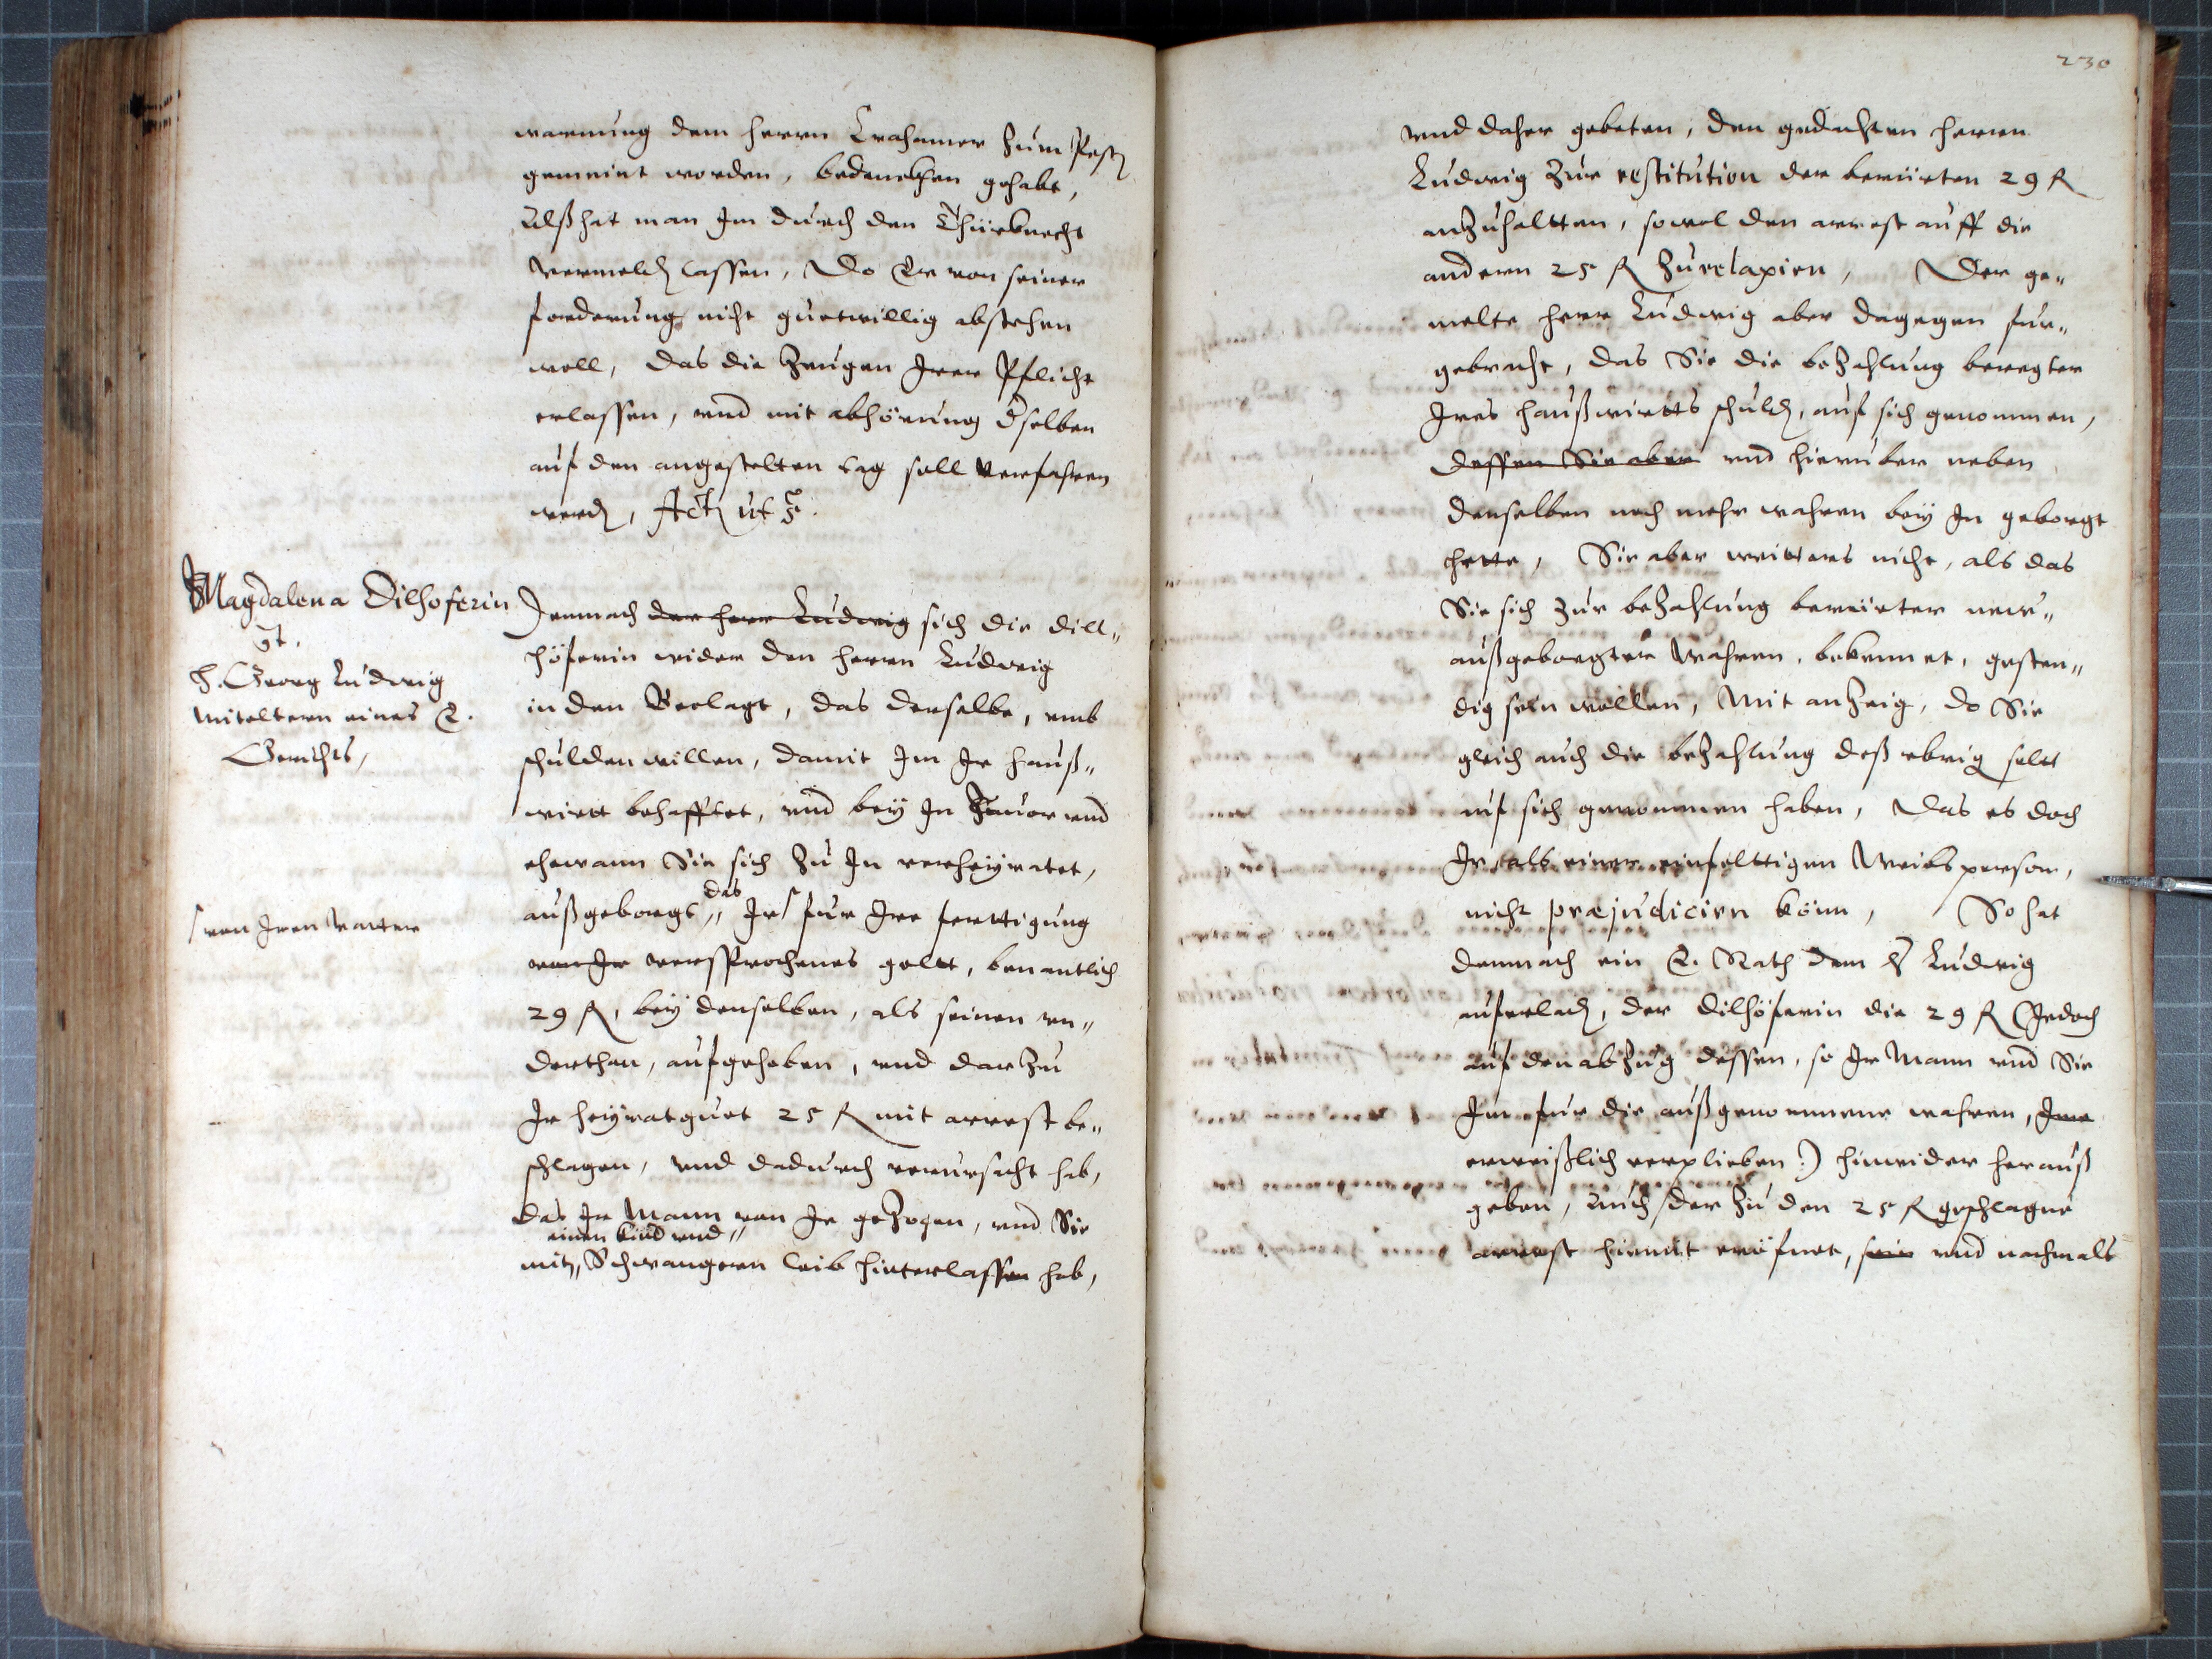 warnung dem herrn Crahamer zum Pesten
gemeint worden, bedencken gehabt,
Alß hat man Im durch den Thürknecht
vermelden lassen, Do Er von seiner
forderung nicht guetwillig abstehen
woll, das die Zeugen Irer Pflicht
erlassen, vnd mit abhörung derselben
auf den angestelten tag soll verfahren
werden, Actum ut s.
Magdalena Dilhoferin
H. Georg Ludwig
miteltern eines E.
Gerichts,
Demnach der herr Ludwig sich die Dill„
höferin wider den herrn Ludwig
in den beclagt, das derselbe, umb
schulden willen, damit Im Ir hauß„
wirtt behafftet, vnd bey In zuuor vnd
ehewann Sie sich zu In verheyratet,
außgeborgt, das Ir fur Ire ferttigung
von Iren vatter
von Ir versprochenes geltt, benantlich
29 fl, bey denselben, als seinen vn„
derthan, aufgehoben, vnd darzu
Ir heyratguet 25 fl mit arrest be„
schlagen, vnd dadurch verursacht hab,
das Ir Mann von Ir gezogen, vnd Sie
einen kind vnd„
mit„ Schwangern leib hinterlassen hab,
230
vnd daher gebeten, den gedachten herrn
Ludwig zur restitution der berürten 29 fl
anzuhaltten, sowol den arrest auff die
andern 25 fl zu relaxirn, Der ge„
melte herr Ludwig aber dagegen fur„
gebracht, das Sie die bezahlung beregter
Ires haußwirtts schulden, auf sich genommen,
dessen Sie aber vnd hieruber neben
denselben noch mehr wahren bey In geborgt
hette, Sie aber weitters nicht, als das
Sie sich zur bezahlung berürter new„
außgeborgter Wahren, bekennet, gesten„
dig sein wöllen, Mit anzeig, do Sie
gleich auch die bezahlung deß vbrig soltt
auf sich genommen haben, Das es doch
Ir als einer einfelttigen Weibsperson,
nicht præjudicirn könn, So hat
demnach ein E. Rath dem H. Ludwig
auferladen, der Dilhöferin die 29 fl (Jedoch
auf den abzug dessen, so Ir Mann vnd Sie
Im fur die außgenommene wahren, Ime
erweißlich verplieben:) hinwider herauß
geben, Auch der zu den 25 fl geschlagne
arrest hiemit eröfnet, sein vnd nachmals